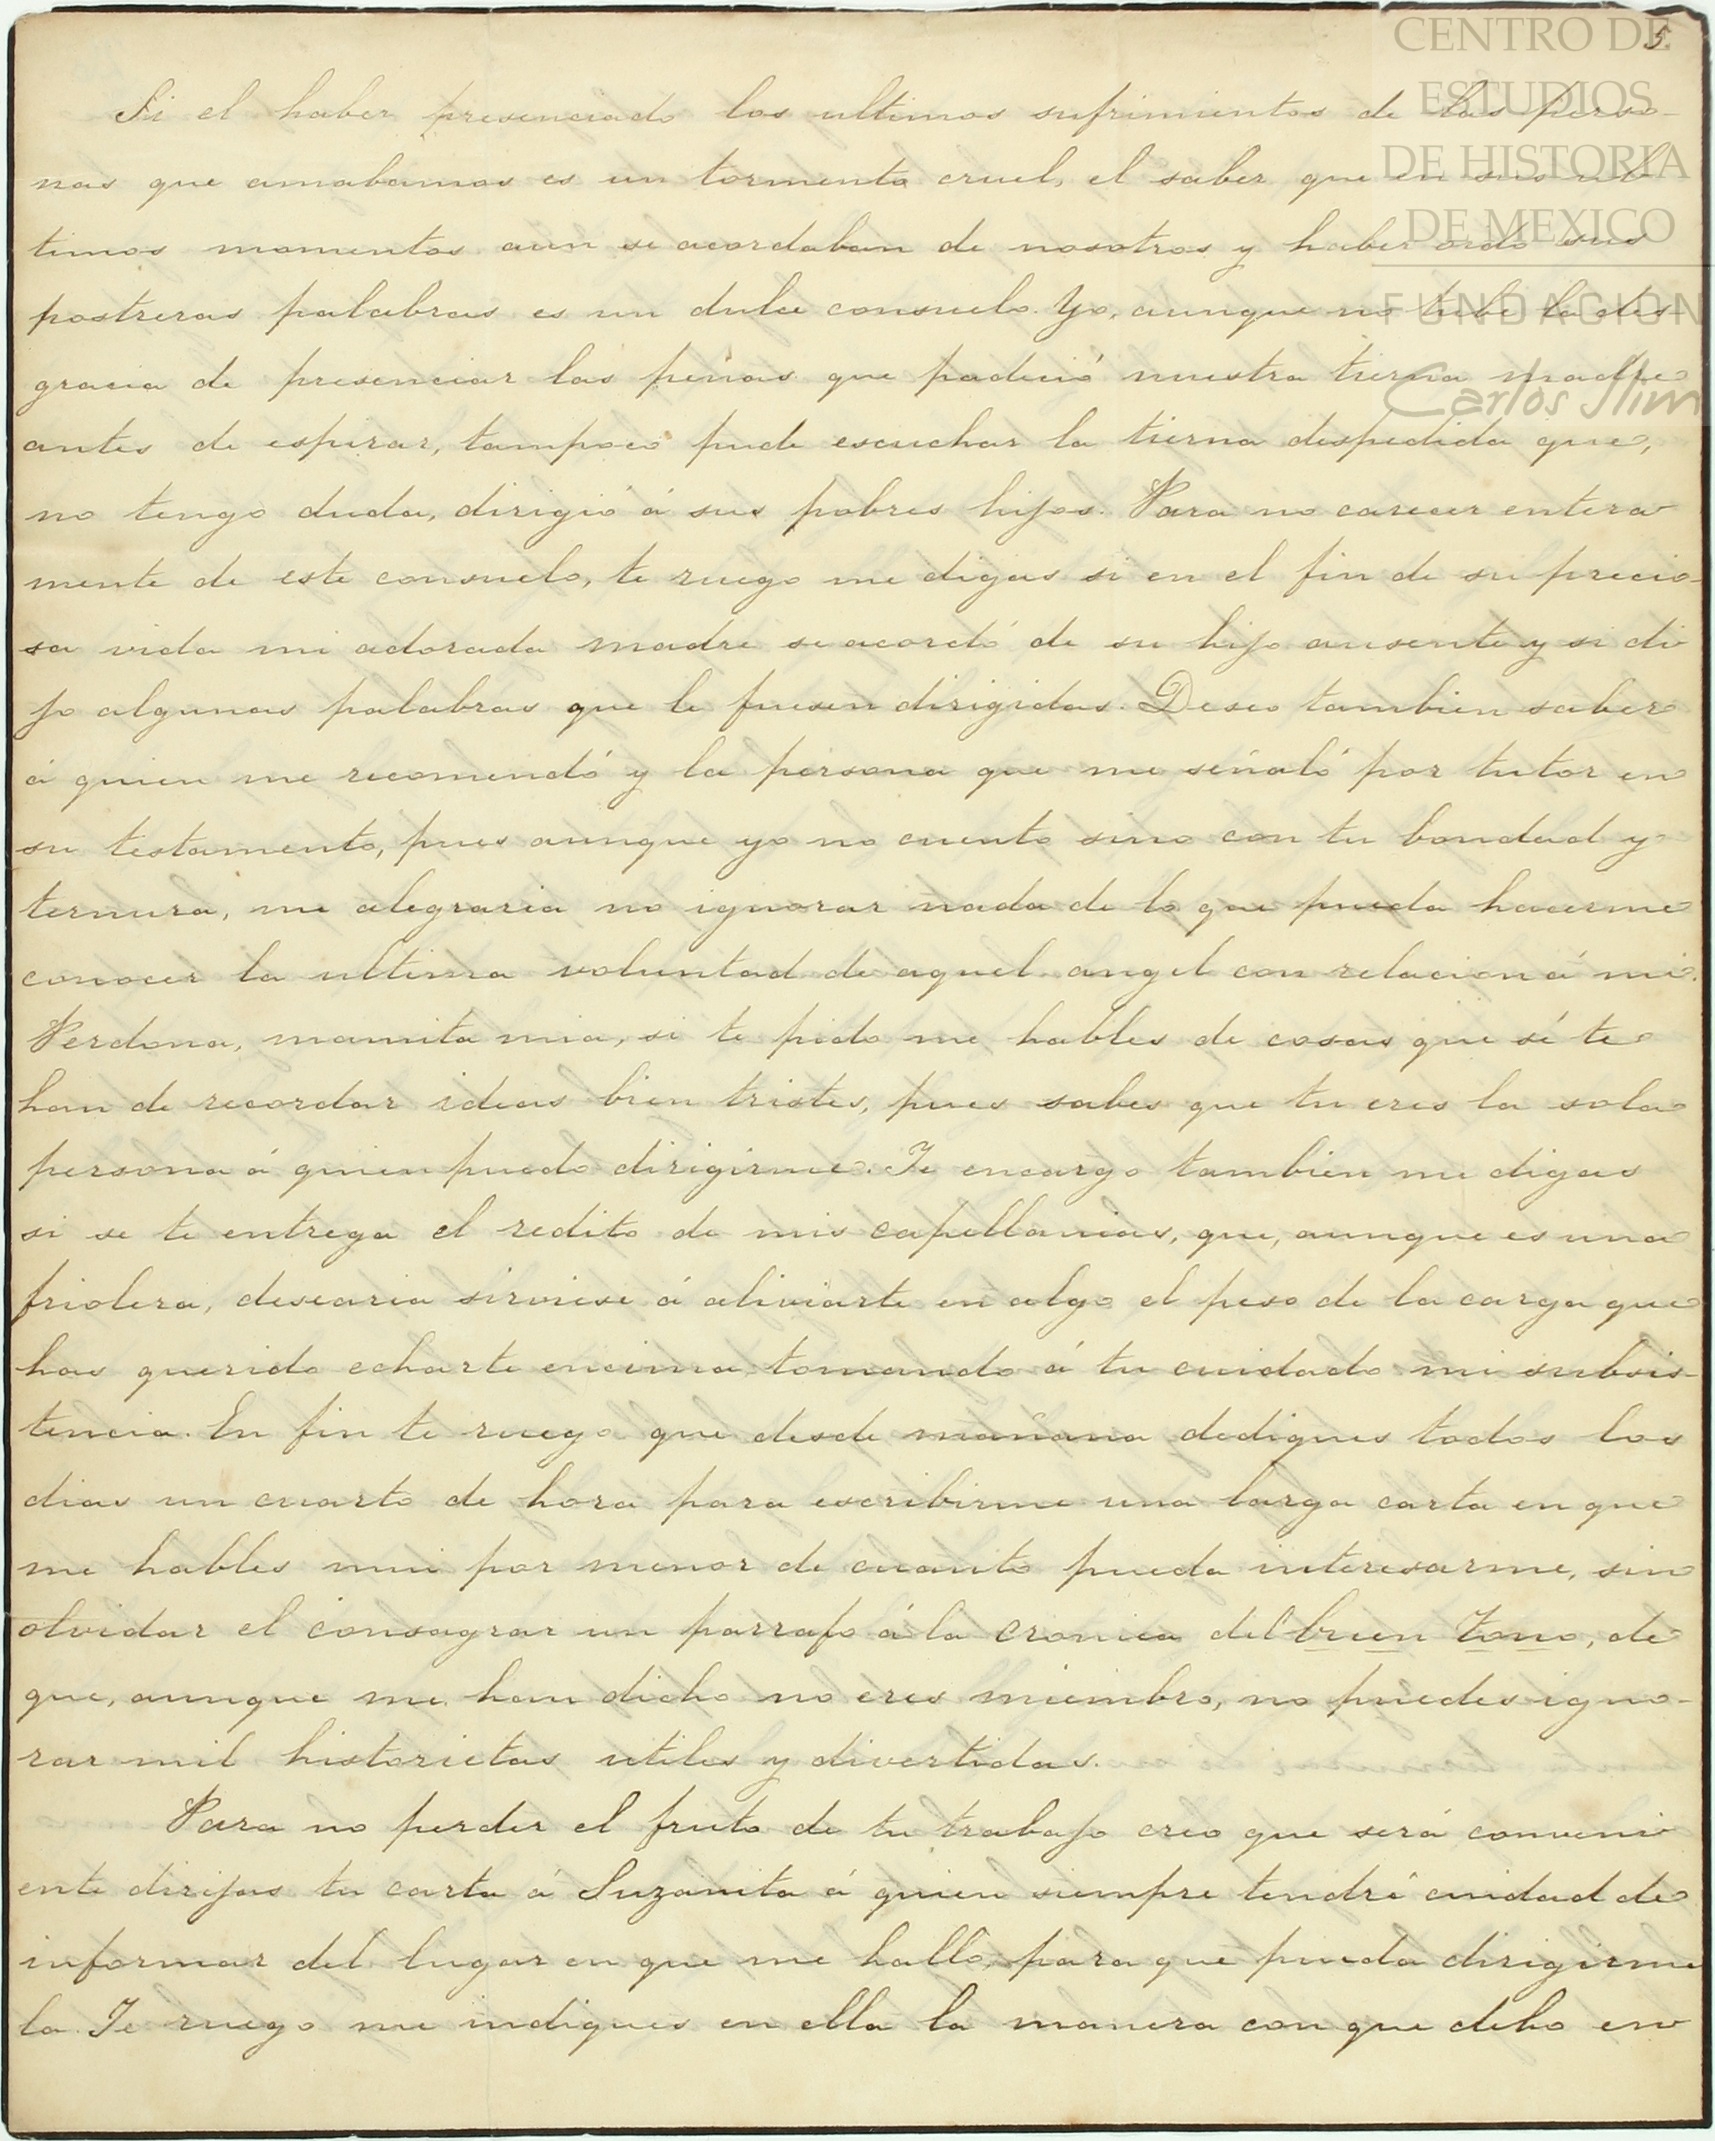 CENTRO DE
ESTUDIOS
DE HISTORIA
DE MEXICO
FUNDACION
Carlos Slim
5
Si el haber presenciado los ultimos sufrimientos de las perso-
nas que amabamos es un tormento cruel, el saber que en sus ul
timos momentos aun se acordaban de nosotros y haber oido sus
postreras palabras es un dulce consuelo. Yo, aunque no tube la des-
gracia de presenciar las penas que padeció nuestra tierna madre
antes de espirar, tampoco pude escuchar la tierna despedida que,
no tengo duda, dirigió á sus pobres hijos. Para no carecer entera
mente de este consuelo, te ruego me digas si en el fin de su precio-
sa vida mi adorada madre se acordó de su hijo ausente y si di
jo algunas palabras que le fuesen dirigidas. Deseo tambien saber
á quien me recomendó y la persona que me señaló por tutor en
su testamento, pues aunque yo no cuento sino con tu bondad y
ternura, me alegraria no ignorar nada de lo que pueda hacerme
conocer la ultima voluntad de aquel angel con relacion á mi.
Perdona, mamita mia, si te pido me hables de cosas que sé te
han de recordar ideas bien tristes, pues sabes que tu eres la sola
persona á quien puedo dirigirme. Te encargo tambien me digas
si se te entrega el redito de mis capellanias, que, aunque es una
friolera, desearia sirviese á aliviarte en algo el peso de la carga que
has querido echarte encima tomando á tu cuidado mi subsis-
tencia. En fin te ruego que desde mañana dediques todos los
dias un cuarto de hora para escribirme una larga carta en que
me hables mui por menor de cuanto pueda interesarme, sin
olvidar el consagrar un parrafo á la cronica del buen tono, de
que, aunque me han dicho no eres miembro, no puedes igno-
rar mil historietas utiles y divertidas.
Para no perder el fruto de tu trabajo creo que será conveni
ente dirijas tu carta á Suzanita á quien siempre tendré cuidad de
informar del lugar en que me hallo, para que pueda dirigirme
la. Te ruego me indiques en ella la manera con que debo en